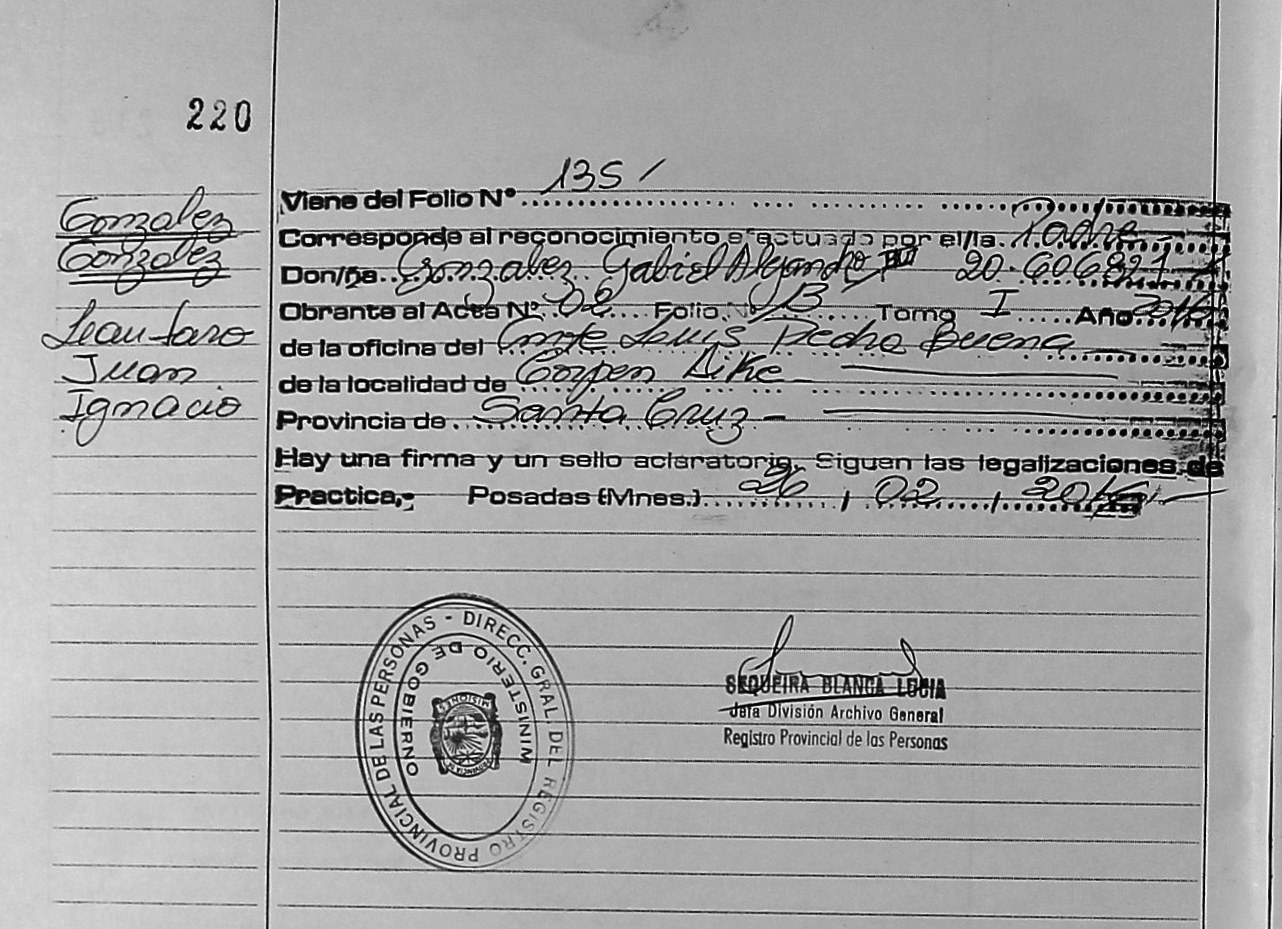 220
Gonzalez
Gonzalez
Leautaro
Juan
Ignacio
Viene del Folio Nº 135 /
Corresponde al reconocimiento efectuado por el/la Padre
Don/ña Gonzalez Gabiel Alejandro 20.606821
Obrante al Acta Nº 02 Folio Nº 13 Tomo I Año 2016
de la oficina del Cmte Luis Pedra Buena
de la localidad de Corpen Aike
Provincia de Santa Cruz -
Hay una firma y un sello aclaratorio. Siguen las legalizaciones de
Practica,- Posadas (Mnes.) 26 / 02 / 2016
DIRECC. GRAL. DEL REGISTRO PROVINCIAL DE LAS PERSONAS -
MINISTERIO DE GOBIERNO
PROVINCIA DE MISIONES
SEQUEIRA BLANCA LUCIA
Jefa División Archivo General
Registro Provincial de las Personas